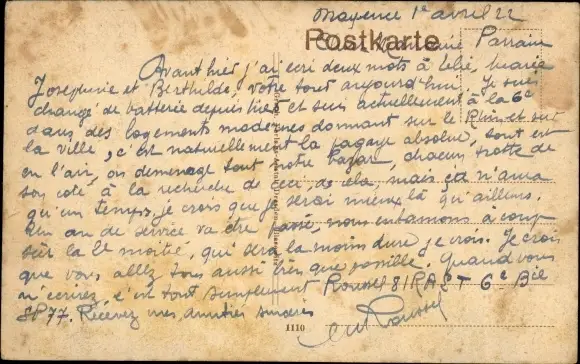 Mayence 1er avril 22
Postkarte
Parrain
Avant hier j'ai écri deux mots à Célie, Marie
Josephine et Birthilde, votre tour aujourd'hui. Je suis
changé de batterie depuis hier et suis actuellement à la 6e
dans des logements modernes donnant sur le Rhin et sur
la ville, c'est naturellement la pagaye absolue, tout est
en l'air, on demenage tout notre bazar, chacun trotte de
son coté à la recherche de ceci, de cela, mais ça n'aura
qu'un temps, je crois que je serai mieux là qu'ailleurs.
Un an de service va être passé, nous entamons à coup
sûr la 2e moitié, qui sera la moins dure je crois. Je crois
que vous allez tous aussi bien que possible. Quand vous
m'écrirez, c'est tout simplement Roussel 81 RA 6e Bie
SP 77. Recevez mes amitiés sincères
Roussel
1110